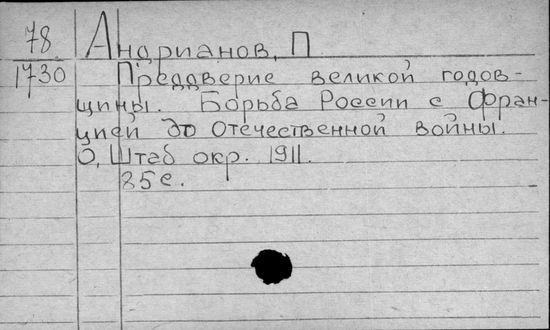 78 Андрианов, П
1730 Преддверие великой годов-
щины. Борьба России с Фран-
цией до Отечественной войны.
О, Штаб окр. 1911.
85с.